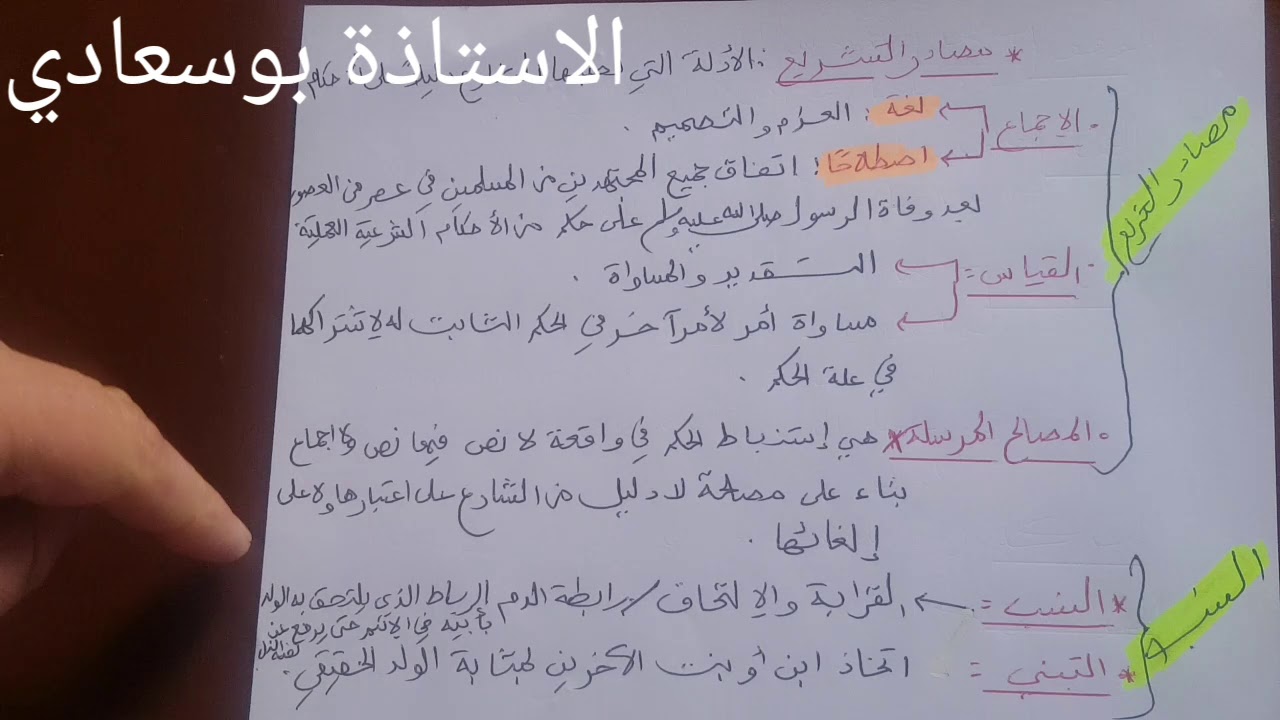 الاستاذة بوسعادي
* مصادر التشريع : الأدلة التي
مصادر التشريع
. الإجماع
لغة : العزم والتصميم .
اصطلاحا : اتفاق جميع المجتهدين من المسلمين في عصر من العصور
بعد وفاة الرسول صلى الله عليه وسلم على حكم من الأحكام الشرعية العملية
. القياس = التقدير والمساواة .
مساواة أمر لأمر آخر في الحكم الثابت له لاشتراكهما
في علة الحكم .
. المصالح المرسلة * هي إستنباط الحكم في واقعة لا نص فيها نص ولا اجماع
بناء على مصلحة لا دليل من الشارع على اعتبارها ولا على
إلغائها .
النسب
* النسب = القرابة والإلتحاق / رابطة الدم الرباط الذي يلتحق به الولد
بأبيه في الإسم حتى يرفع عن
* التبني = اتخاذ ابن أو بنت الآخرين بمثابة الولد الحقيقي